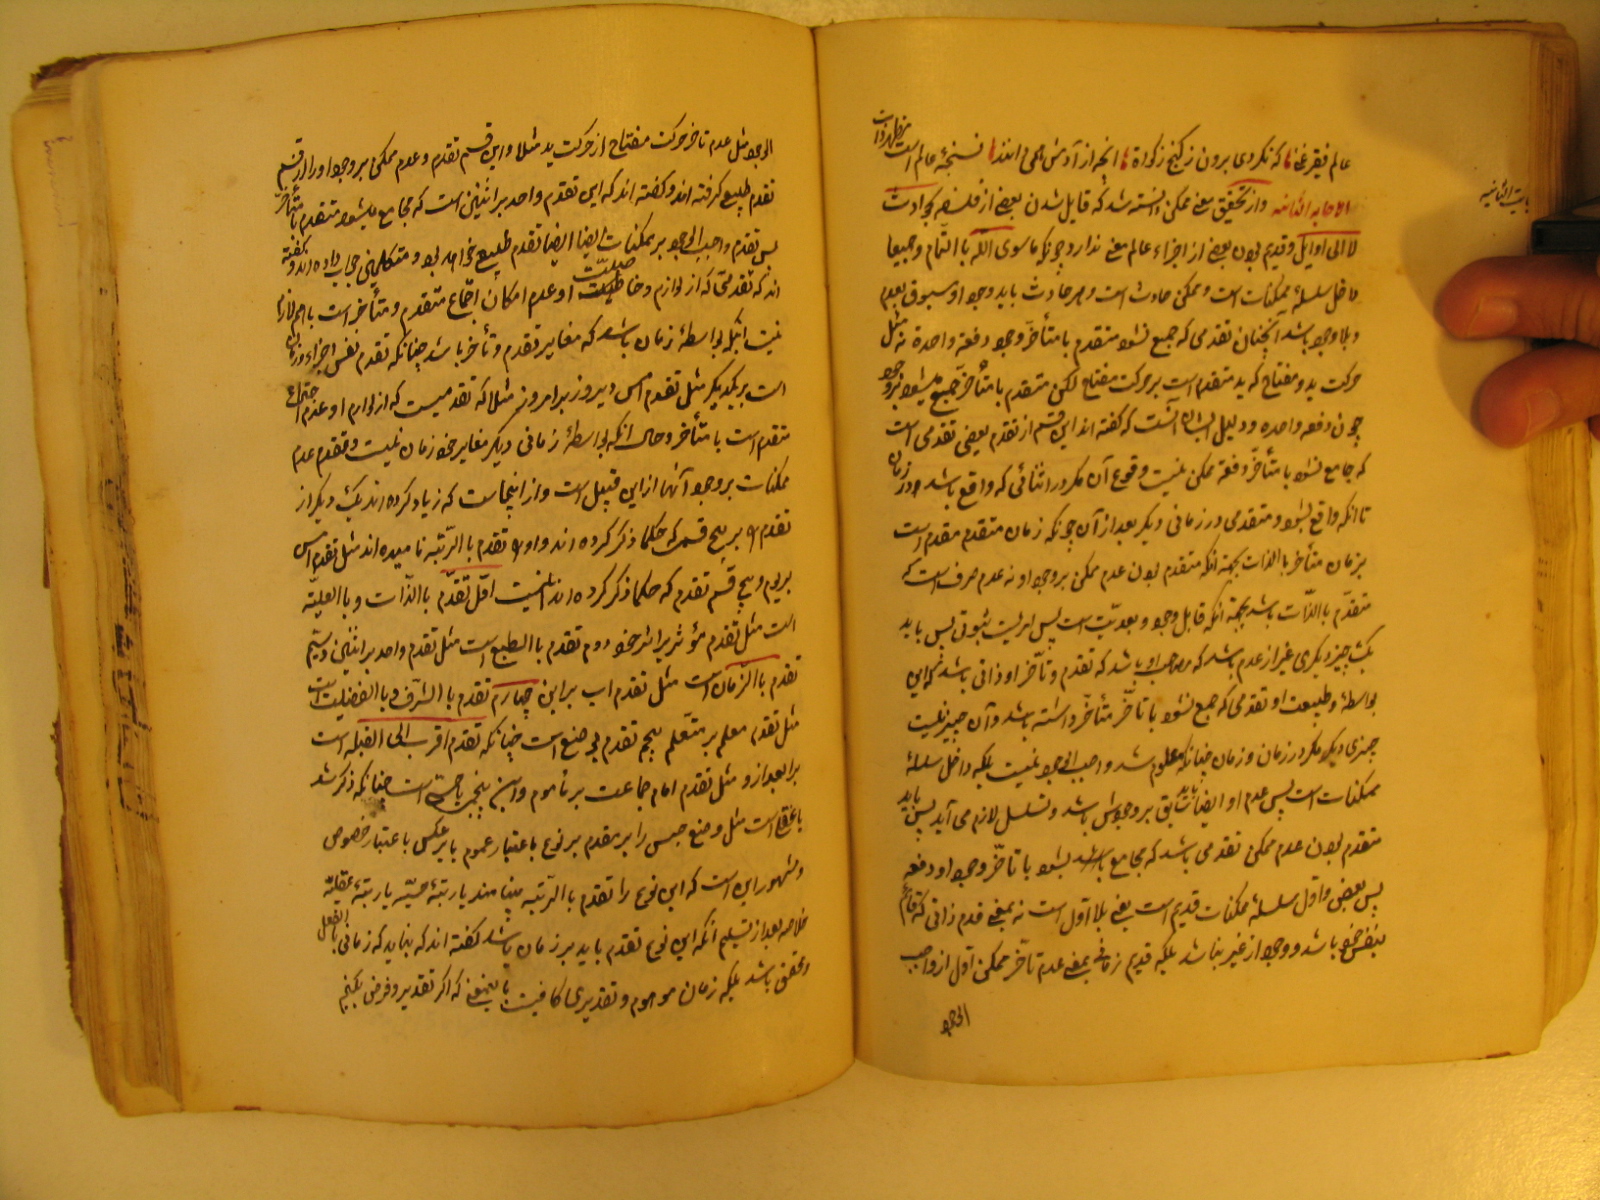 عالم فیر غنا که نکردی برون ز کنج زکواة انچه از آدمش همی نامند نسخهٔ عالم است
مظهر ذات
الاجابه الثانیه و از تحقیق معنی ممکن دانسته شد که قایل شدن بعضی از فلسفه بحوادث
لا الی اوایل و قدیم بودن بعضی از اجزاء عالم معنی ندارد چونکه ما سوی اللّه باالتمام و جمیعا
داخل سلسلهٔ ممکنات است و ممکن حادث است و هر حادث باید وجود او مسبوق بعدم
و بلا وجود باشد آنچنان تقدمی که جمیع نشود متقدم با متأخر وجود دفعة واحدة نه مثل
حرکت ید و مفتاح که ید متقدم است بر حرکت مفتاح لکن متقدم با متأخر جمیع میشود بر وجود
چون دفعه واحده و دلیل اینان آنست که گفته اند این قسم از تقدم یعنی تقدمی است
که جامع نشود با متأخر دفعة ممکن نیست وقوع آن مگر در اثنائی که واقع باشد در زمان
تا انکه واقع بشود متقدمی در زمانی دیگر بعد از آن چونکه زمان متقدم مقدم است
بر زمان متأخر باالذات بجهة انکه متقدم بودن عدم ممکن بر وجود او نه عدم صرف است که
متقدّم باالذّات باشد بجهة انکه قابل وجود و بعدیّت است پس امریست ثبوتی پس باید
یک چیز دیگری غیر از عدم باشد که صاحب او باشد که تقدم و تأخر او ذاتی باشد که این
بواسطهٔ و طبیعت او تقدمی که جمع نشود با تأخر متأخر داشته باشد و آن چیز نیست
چیزی دیگر مگر در زمان و زمان چنانکه معلوم شد واجب الوجود نیست بلکه داخل سلسلهٔ
ممکنات است پس عدم او ایضا باید سابق بر وجودش باشد و تسلسل لازم می آید پس باید
متقدم بودن عدم ممکن تقدمی باشد که مجامع بشود با تأخر وجود او دفعه
پس بعضی و اول سلسلهٔ ممکنات قدیم است یعنی بلا اول است نه بمعنی قدم ذاتی که قائم
بنفس خود باشد و وجود از غیر نباشد بلکه قدیم زمانی بمعنی عدم تأخر ممکن اول از واجب
الوجود
الوجود مثل عدم تأخر حرکت مفتاح از حرکت ید مثلا و این قسم تقدم و عدم ممکن بر وجود او را از قسم
تقدم طبیع گرفته اند و گفته اند که این تقدم واحد بر اثنین است که مجامع میشود متقدم با متأخر
پس تقدم واجب الوجود بر ممکنات ایضا تقدم طبیع خواهد بود و متکلمین جواب داده اند و گفته
اند که تقدمی که از لوازم و خاصیّت او عدم امکان اجتماع متقدم و متأخر است با هم لازم
نیست انکه بواسطهٔ زمان باشد که مغایر تقدم و تأخر باشد چنانکه تقدم نفس اجزاء زمان
است بر یکدیگر مثل تقدم امس دیروز بر امروز مثلا که تقدمیست که از لوازم او عدم اجتماع
متقدم است با متأخر و حال انکه بواسطهٔ زمانی دیگر مغایر خود زمان نیست و تقدم عدم
ممکنات بر وجود آنها از این قبیل است و از اینجاست که زیاد کرده اند یک دیگر از
تقدم بر پنج قسم که حکما ذکر کرده اند و او تقدم باالرّتبه نامیده اند مثل تقدم امس
بر یوم و پنج قسم تقدم که حکما ذکر کرده اند اینست اوّل تقدّم باالذّات و باالعلیّه
است مثل تقدم مؤثر بر اثر خود دوم تقدم باالطبع است مثل تقدم واحد بر اثنین و سیّم
تقدم باالزمان است مثل تقدم اب بر ابن چهارم تقدم باالشرف و باالفضیلت است
مثل تقدم معلم بر متعلم پنجم تقدم بوضع است چنانکه تقدم اقرب الی القبله است
بر ابعد از او مثل تقدم امام جماعت بر مأموم و این پنجم یا حسی است چنانکه ذکر شد
یا عقلی است مثل وضع جنس را بر مقدم بر نوع باعتبار عموم یا بر عکس باعتبار خصوص
و مشهور این است که این نوع را تقدم باالرّتبه مینامند یا رتبهٔ حسیّه یا رتبهٔ عقلیّه
خلاصه بعد از تسلیم آنکه این نوع تقدم باید بر زمان باشد گفته اند که نباید که زمانی بالفعل
و محقق باشد بلکه زمان موهوم و تقدیری کافیست بامعنی که اکر تقدیر و فرض بکنیم